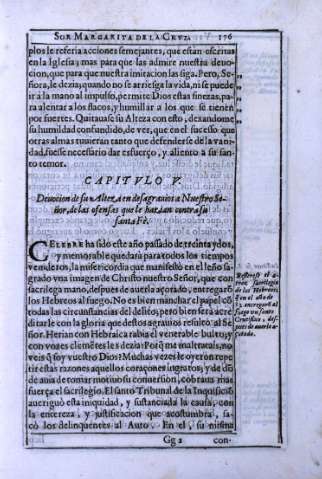 SOR MARGARITA DE LA CRUZ. 176
plos le referia acciones semejantes, que estàn escritas
en la Iglesia; mas para que las admire nuestra deuo-
cion, que para que nuestra imitacion las siga. Pero, Se-
ñora, le dezia; quando no se arriesga la vida, ni se puede
ir a la mano al impulso, permite Dios estas finezas, pa-
ra alentar a los flacos, y humillar a los que se tienen
por fuertes. Quitauase su Alteza con esto, dexandome
su humildad confundido, de ver, que en el sucesso que
otras almas tuuieran tanto que defenderse de la va-
nidad, fuesse necessario dar esfuerço, y aliento a su san-
to temor.
CAPITVLO V.
Deuocion de su Alteza en desagrauios a Nuestro Se-
ñor, de las ofensas que le hazian contra su
santa Fè.
CELEBRE ha sido este año passado de treinta y dos,
y memorable quedarà para todos los tiempos
venideros, la misericordia que manifestò en el leño sa-
grado vna imagen de Christo nuestro Señor, que con
sacrilega mano, despues de auerla açotado, entregarõ
los Hebreos al fuego. No es bien manchar el papel cõ
todas las circunstancias del delito; pero bien serà acre-
ditarle con la gloria que destos agrauios resultò al Se-
ñor. Herian con Hebraica rabia el venerable bulto; y
con vozes clemẽtes les dezia: Porq̃ me maltratais, no
veis q̃ soy vuestro Dios? Muchas vezes le oyerõ repe-
tir estas razones aquellos coraçones ingratos; y de dõ-
de auia de tomar motiuo su conuersion, cobraua mas
fuerça el sacrilegio. El santo Tribunal de la Inquisiciõ
aueriguò esta iniquidad, y sustanciada la causa, con
la entereza, y justificacion que acostumbra, sa-
cò los delinquentes al Auto. En el, su misma
Gg 2 con-
de los Hebreos,